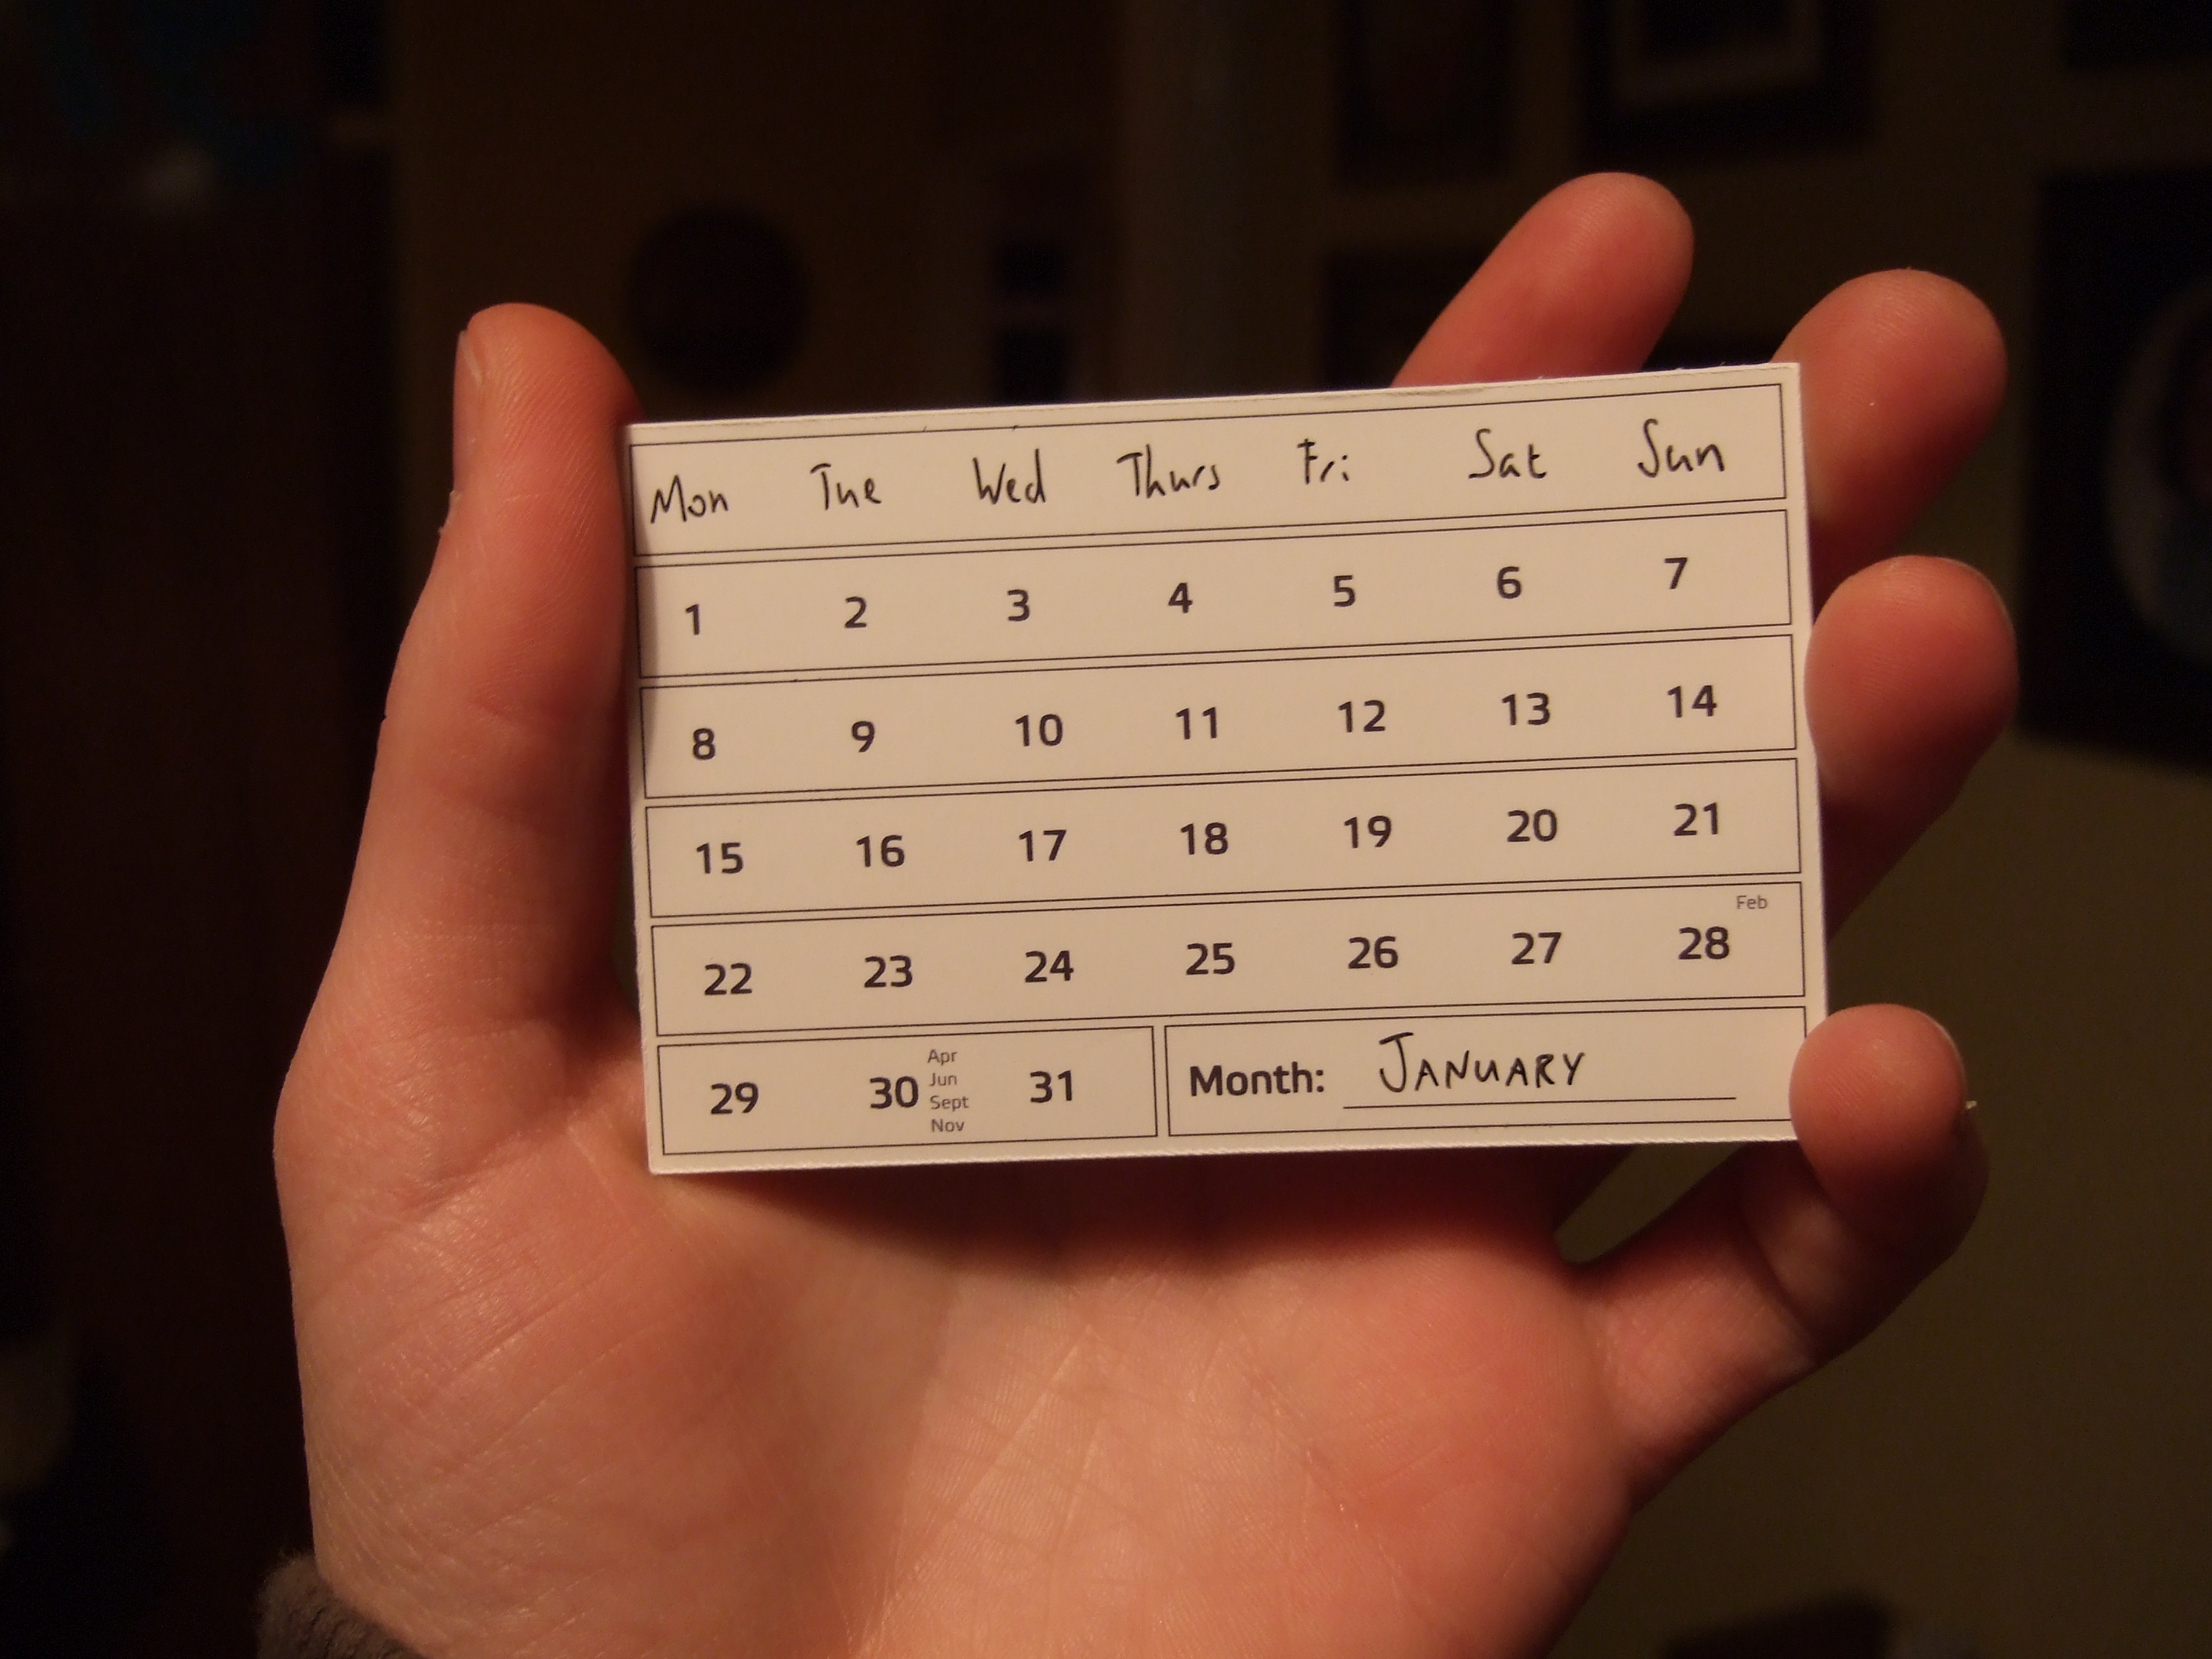 Mon Tue Wed Thurs Fri Sat Sun
1 2 3 4 5 6 7
8 9 10 11 12 13 14
15 16 17 18 19 20 21
22 23 24 25 26 27 28 Feb
29 30 Apr Jun Sept Nov 31
Month: JANUARY